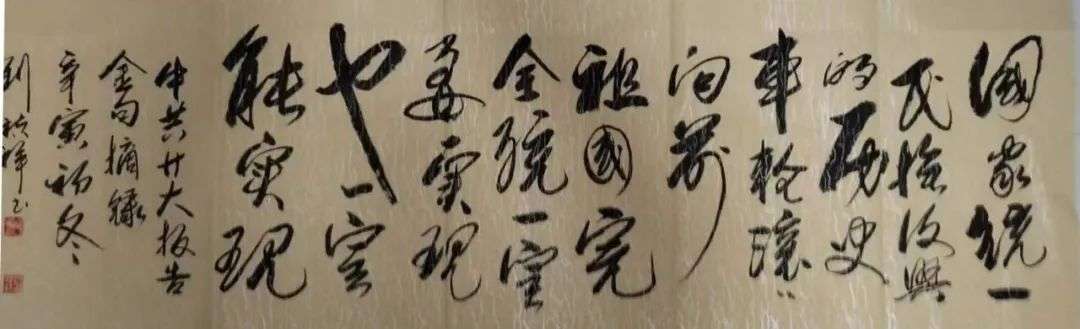 國家统一
民族復興
的历史
車轮滚〻
向前
祖國完
全统一定
要实现
也一定
能实现
中共廿大报告
金句摘录
辛寅初冬
刘祥书